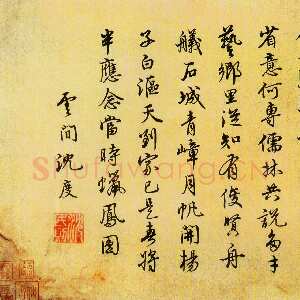 省意何專儒林共說多才
藝鄉里從知有俊賢舟
艤石城青嶂月帆開楊
子白漚天到家已是春將
半應念當時蠟鳳圓
雲間沈度
Shufawang.CN